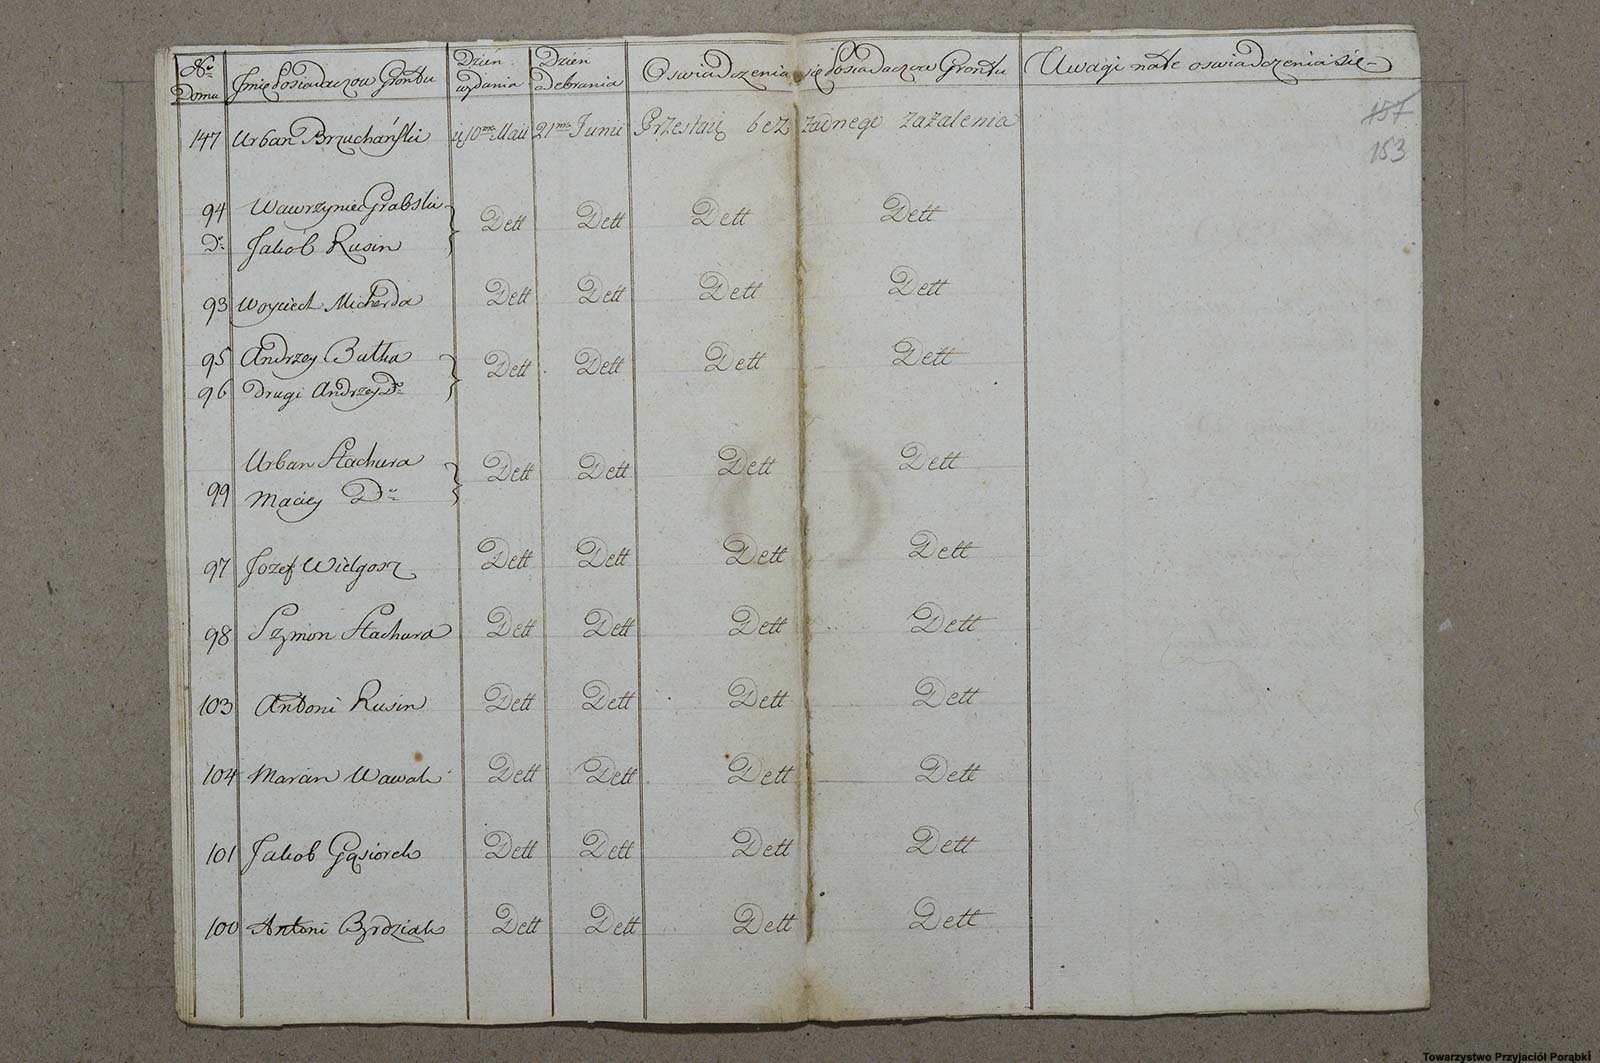 Nro Domu Jmię Posiadaczow Grontu Dzień wydania Dzień odebrania Oswiadczenia się Posiadaczow Grontu Uwagi na te oswiadczenia się
157
153
147 Urban Brzuchański 10ma Maii 21ma Junii Przestaię bez żadnego zażalenia
94 Wawrzyniec Grabski Dett Dett Dett Dett
Do Jakob Rusin
93 Woyciech Micherda Dett Dett Dett Dett
95 Andrzey Butka Dett Dett Dett Dett
96 Drugi Andrzey Do
Urban Stachura Dett Dett Dett Dett
99 Maciey Do
97 Jozef Wielgosz Dett Dett Dett Dett
98 Szmon Stachura Dett Dett Dett Dett
103 Antoni Rusin Dett Dett Dett Dett
104 Marcin Wawak Dett Dett Dett Dett
101 Jakob Gąsiorek Dett Dett Dett Dett
100 Antoni Byrdziak Dett Dett Dett Dett
Towarzystwo Przyjaciół Porąbki